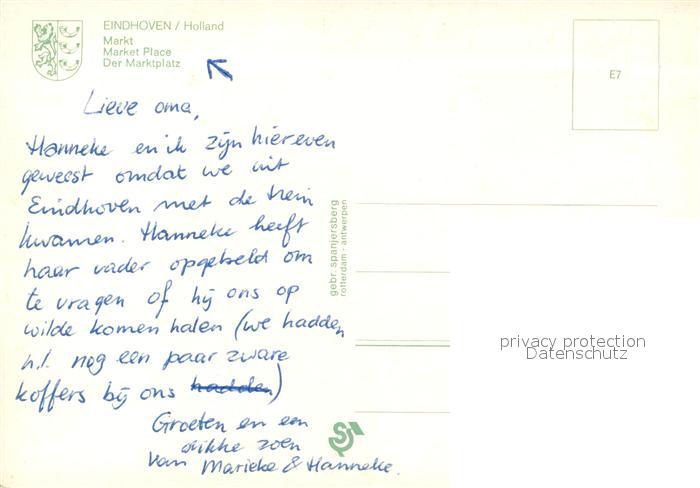 EINDHOVEN / Holland
Markt
Market Place
Der Marktplatz
E7
Lieve oma,
Hanneke en ik zijn hier even
geweest omdat we uit
Eindhoven met de trein
kwamen. Hanneke heeft
haar vader opgebeld om
te vragen of hij ons op
wilde komen halen (we hadden
n.l. nog een paar zware
koffers bij ons hadden)
Groeten en een
dikke zoen
van Marieke & Hanneke.
gebr. spanjersberg
rotterdam - antwerpen
privacy protection
Datenschutz